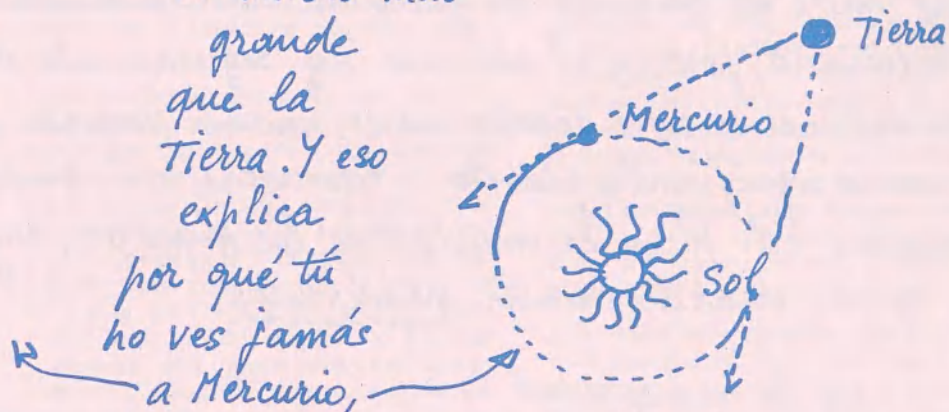 grande
que la
Tierra Y eso
explica
por qué tú
no ves jamás
a Mercurio,
Tierra
Mercurio
Sol